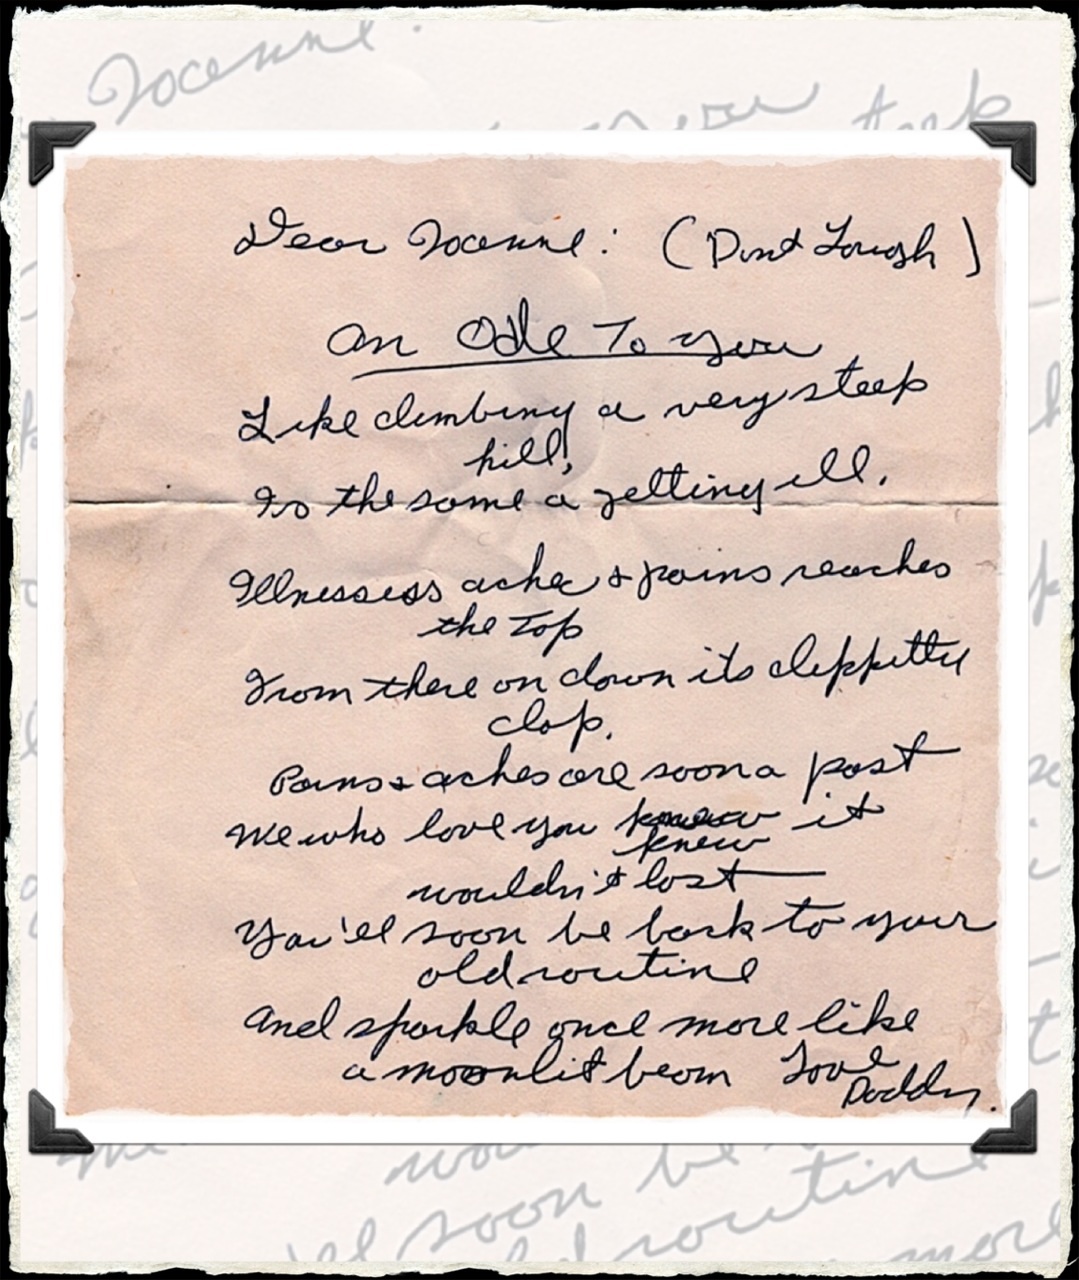 Dear Joeanne: (Dont Laugh)
An Ode To you
Like climbing a very steep
hill,
Is the same a getting ill.
Illnessess ache & pains reaches
the top
From there on down its clippitty
clop.
Pains & aches are soon a past
We who love you knew it
wouldn't last
You'll soon be back to your
old routine
And sparkle once more like
a moonlit beam Love
Daddy.